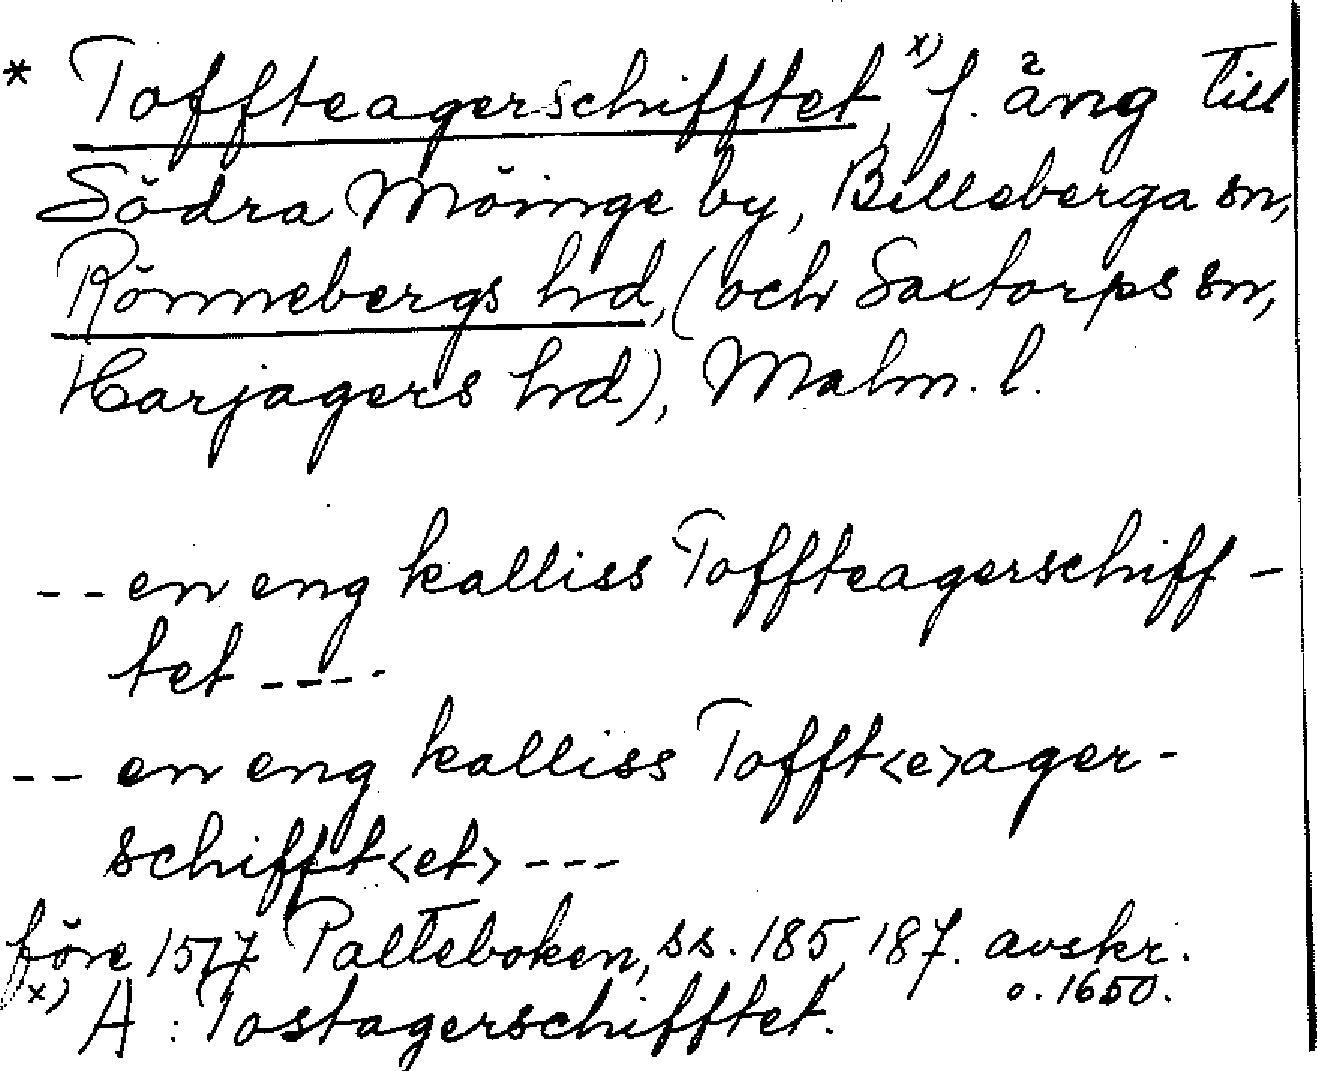 * Toffteagerschifftet, x) f. äng till
Södra Möinge by, Billeberga sn,
Rönnebergs hd, (och Saxtorps sn,
Harjagers hd), Malm. l.
-- en eng kalliss Toffteagerschiff-
tet ----
-- en eng kalliss Tofft<e>ager-
schifft<et> ---
före 1517 Palteboken, ss. 185, 187. avskr.
o. 1650.
x) A: Tostagerschifftet.